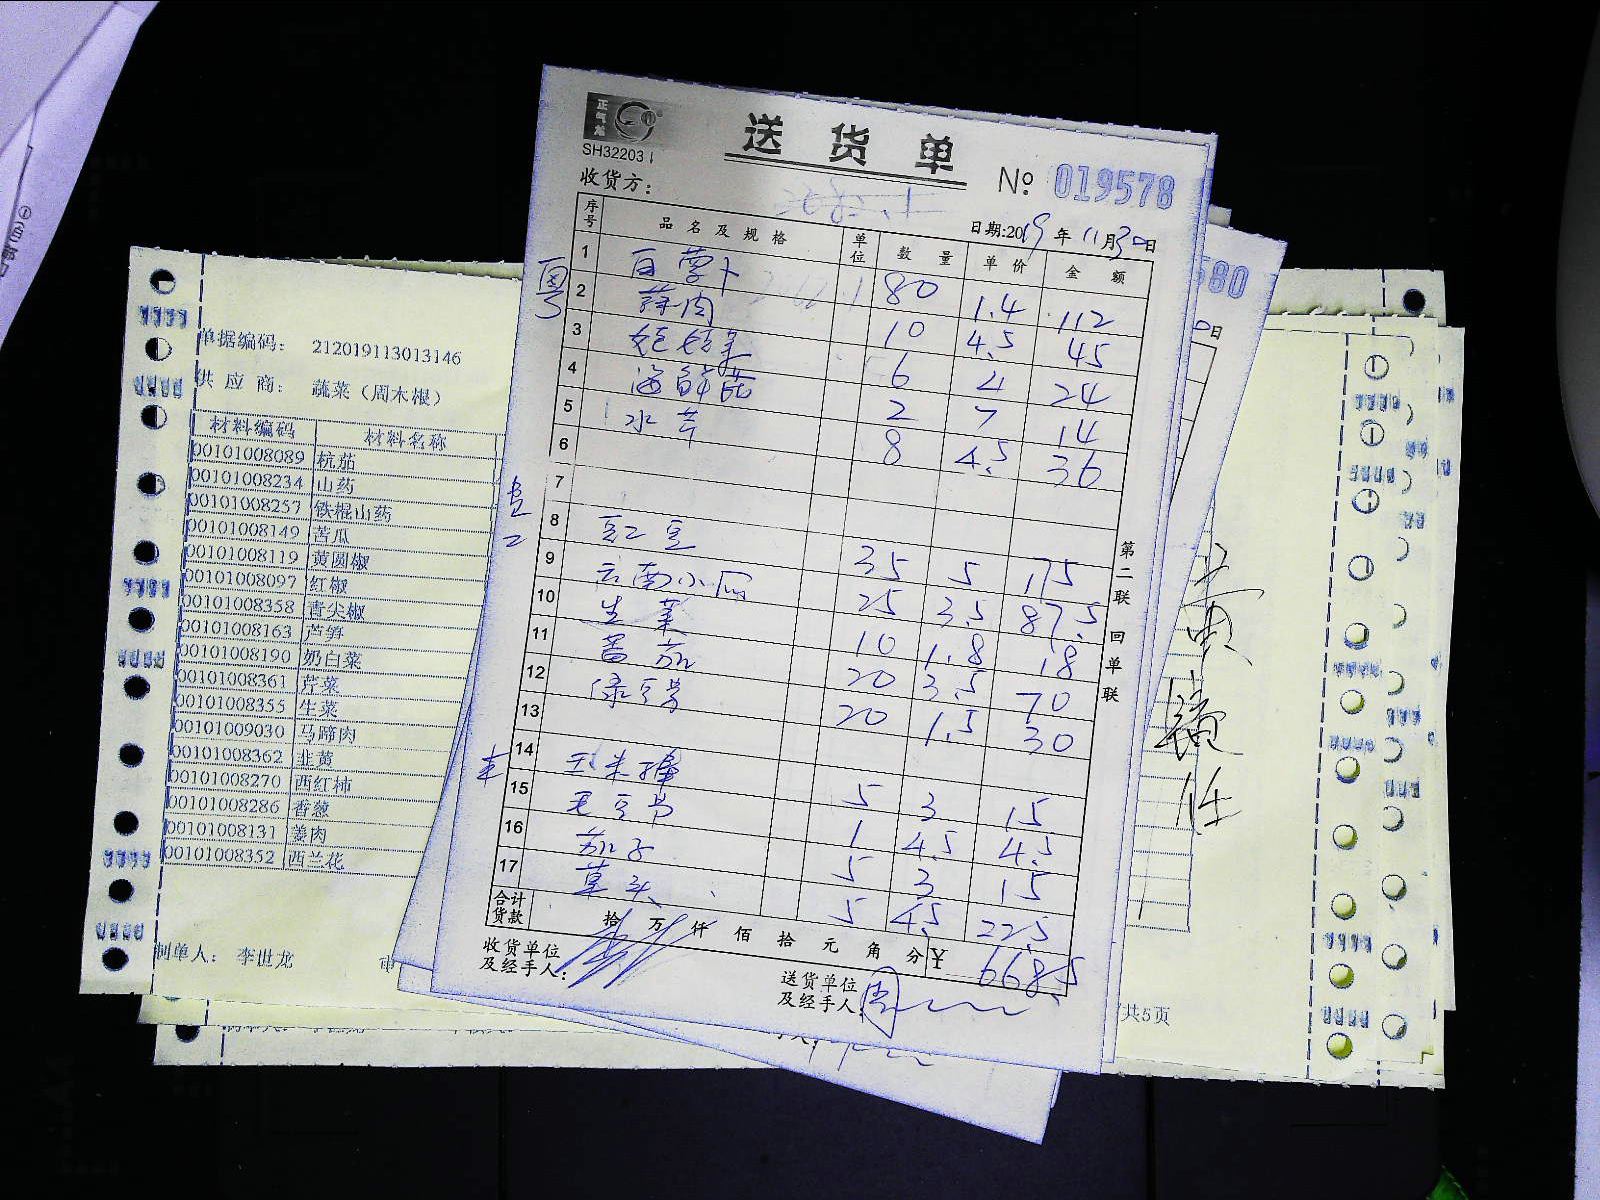 正气龙
SH32203
送货单
№ 019578
收货方：
日期:2019年11月30日
序号 品名及规格 单位 数量 单价 金额
1 白萝卜 80 1.4 112
2 蒜肉 10 4.5 45
3 6 4 24
4 海鲜菇 2 7 14
5 水芹 8 4.5 36
6
7
8 豇豆 35 5 175
9 云南小瓜 25 3.5 87.5
10 生菜 10 1.8 18
11 蕃茄 20 3.5 70
12 绿豆芽 20 1.5 30
13
14 玉米棒 5 3 15
15 毛豆节 1 4.5 4.5
16 茄子 5 3 15
17 草头 5 4.5 22.5
合计货款 拾万仟佰拾元角分 ¥ 668.5
收货单位及经手人：
送货单位及经手人： 周
第二联 回单联
粤
580
日
单据编码： 212019113013146
供应商： 蔬菜（周木根）
材料编码 材料名称
00101008089 杭茄
00101008234 山药
00101008257 铁棍山药
00101008149 苦瓜
00101008119 黄圆椒
00101008097 红椒
00101008358 青尖椒
00101008163 芦笋
00101008190 奶白菜
00101008361 芹菜
00101008355 生菜
00101009030 马蹄肉
00101008362 韭黄
00101008270 西红柿
00101008286 香葱
00101008131 姜肉
00101008352 西兰花
制单人： 李世龙
审
共5页